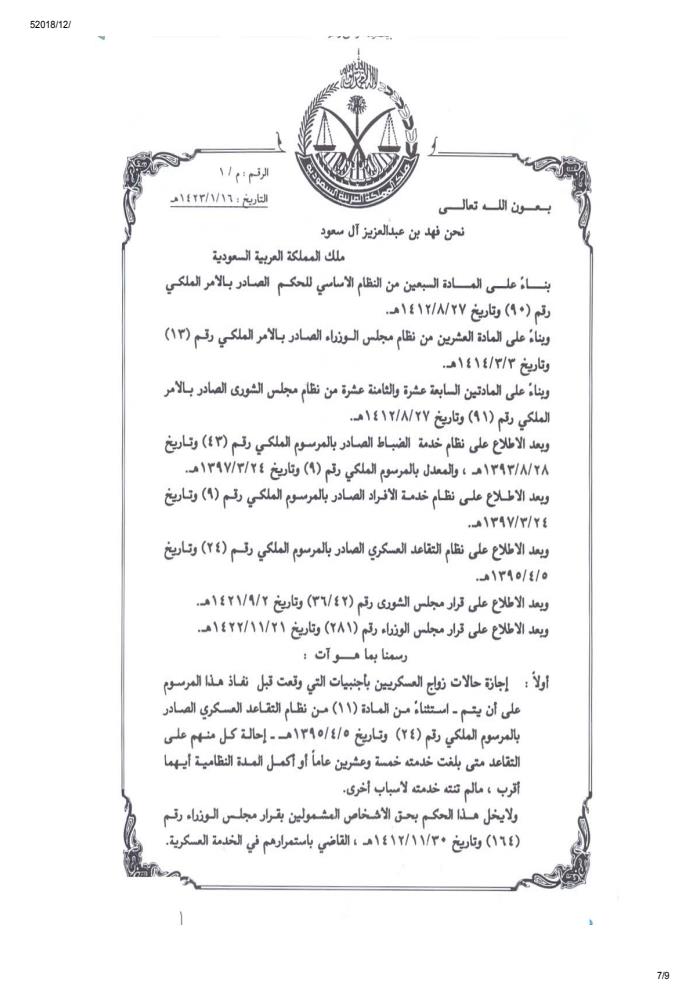 52018/12/
الرقم : م / ١
التاريخ : ١٤٢٣/١/١٦هـ
بـعـــون اللـــه تعالـــى
نحن فهد بن عبدالعزيز آل سعود
ملك المملكة العربية السعودية
بنـــاءً علـــى المـــادة السبعين من النظام الأساسي للحكـم الصادر بـالأمر الملكـي
رقم (٩٠) وتاريخ ١٤١٢/٨/٢٧هـ.
وبناءً على المادة العشرين من نظام مجلس الـوزراء الصادر بـالأمر الملكـي رقـم (١٣)
وتاريخ ١٤١٤/٣/٣هـ.
وبناءً على المادتين السابعة عشرة والثامنة عشرة من نظام مجلس الشورى الصادر بـالأمر
الملكي رقم (٩١) وتاريخ ١٤١٢/٨/٢٧هـ.
وبعد الاطلاع على نظام خدمة الضباط الصادر بالمرسوم الملكـي رقـم (٤٣) وتـاريخ
١٣٩٣/٨/٢٨هـ ، والمعدل بالمرسوم الملكي رقم (٩) وتاريخ ١٣٩٧/٣/٢٤هـ.
وبعد الاطـلاع علـى نظـام خدمـة الأفـراد الصادر بالمرسوم الملكـي رقـم (٩) وتـاريخ
١٣٩٧/٣/٢٤هـ.
وبعد الاطلاع على نظام التقاعد العسكري الصادر بالمرسوم الملكي رقــم (٢٤) وتـاريخ
١٣٩٥/٤/٥هـ.
وبعد الاطلاع على قرار مجلس الشورى رقم (٣٦/٤٢) وتاريخ ١٤٢١/٩/٢هـ.
وبعد الاطلاع على قرار مجلس الوزراء رقم (٢٨١) وتاريخ ١٤٢٢/١١/٢١هـ.
رسمنا بما هـــو آت :
أولاً : إجازة حالات زواج العسكريـين بـأجنبيات التي وقعت قبل نفـاذ هـذا المرسوم
على أن يتـم ـ استثنـاءً مـن المـادة (١١) مـن نظـام التقـاعد العسكري الصادر
بالمرسوم الملكي رقم (٢٤) وتـاريخ ١٣٩٥/٤/٥هــ ـ إحالـة كـل منهـم علـى
التقاعد متى بلغت خدمته خمسة وعشرين عاماً أو أكمـل المـدة النظاميـة أيـهما
أقرب ، مالم تنته خدمته لأسباب أخرى.
ولايخل هـذا الحكـم بحـق الأشخاص المشمولين بقـرار مجلـس الـوزراء رقـم
(١٦٤) وتاريخ ١٤١٢/١١/٣٠هـ ، القاضي باستمرارهم في الخدمة العسكرية.
١
7/9